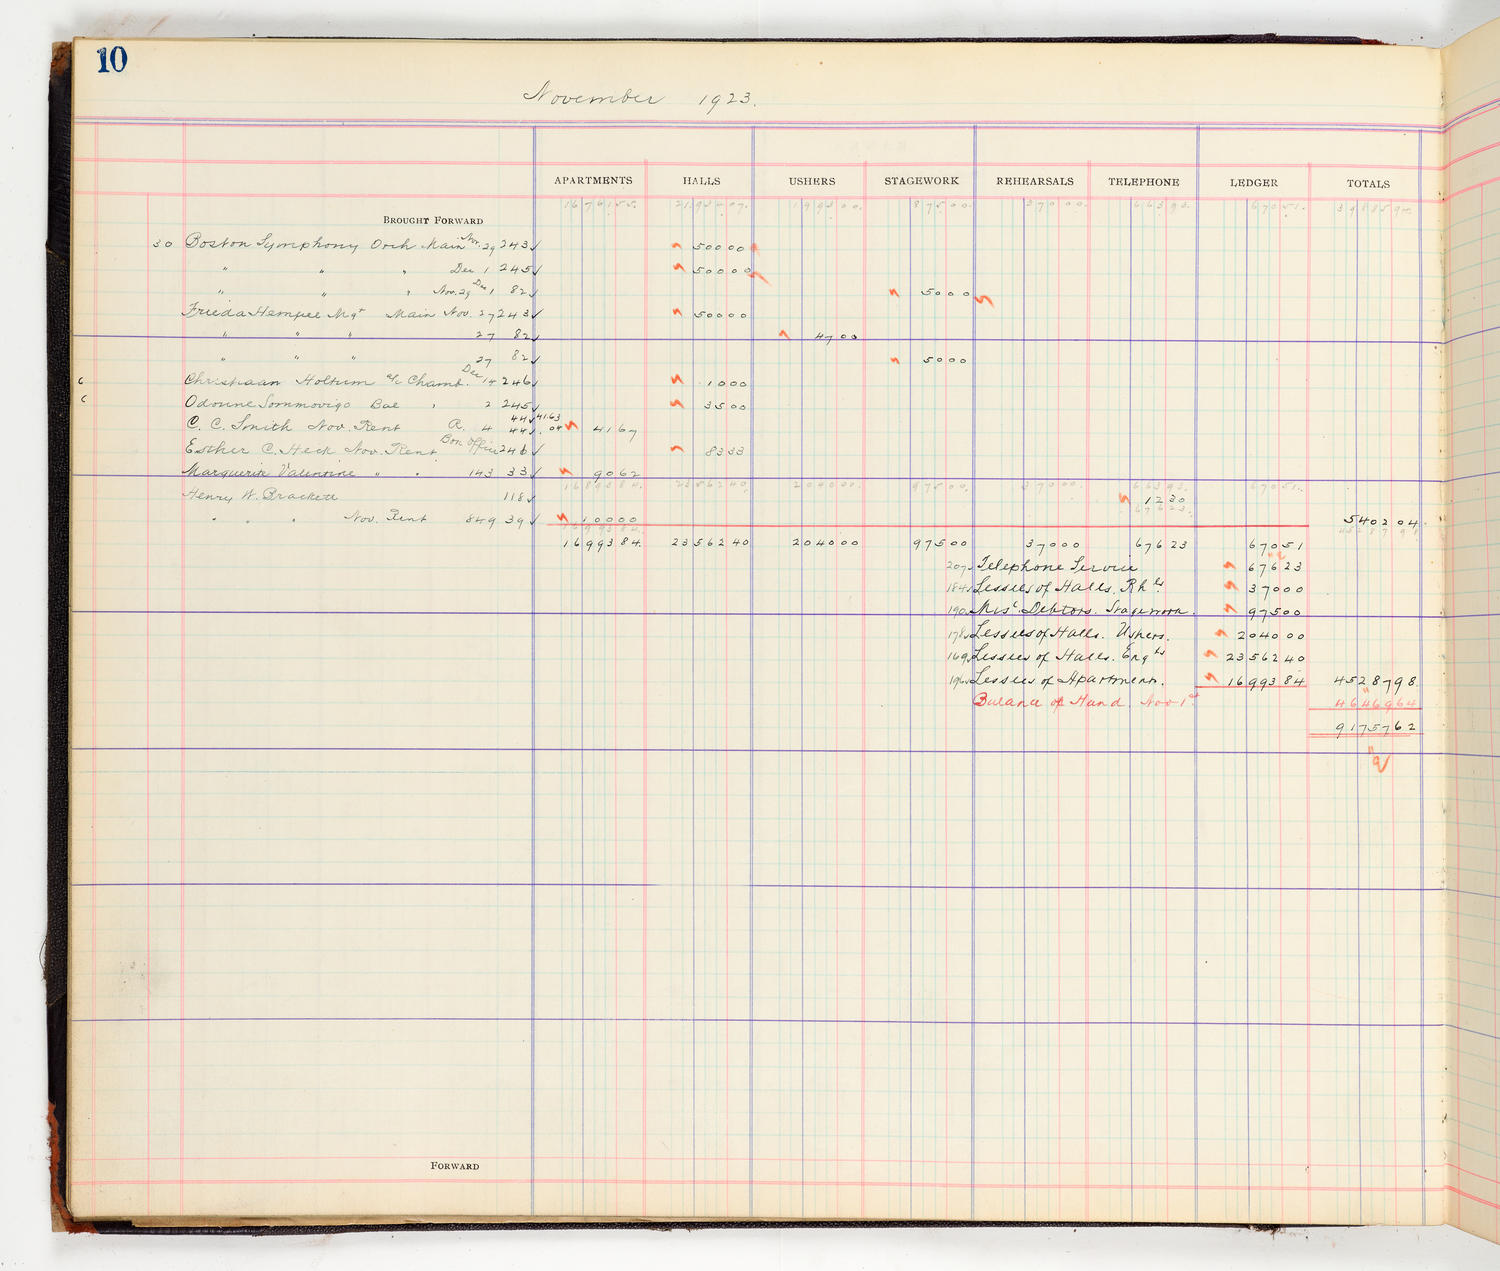 10
November 1923.
APARTMENTS HALLS USHERS STAGEWORK REHEARSALS TELEPHONE LEDGER TOTALS
BROUGHT FORWARD 1676155 2193407 199300 87500 37000 66393 67051
30 Boston Symphony Orch Main Nov. 29 243 50000
" " " Dec 1 245 50000
" " " Nov. 29 Dec 1 82 5000
Frieda Hempel Mgt Main Nov. 27 243 50000
" " " 27 82 4700
" " " 27 82 5000
c Christiaan Holtum a/c Chamb. Dec 14 246 1000
c Odoune Sommovigo Bal " 2 245 3500
C. C. Smith Nov. Rent R. 4 44 41.63 44 .04 4167
Esther C. Heck Nov. Rent Box Office 246 8333
Marguerite Valentine " " 143 33 9062
1689384 2356240 204000 97500 37000 66393 67051
Henry W. Brackett 118 1230
67623
" " " Nov. Rent 849 39 10000 5402 04
1699384 4528798
1699384. 2356240 204000 97500 37000 67623 67051
207 Telephone Service 67623
184 Lessees of Halls. Rhls. 37000
190 Misc. Debtors. Stagework. 97500
178 Lessees of Halls. Ushers. 204000
169 Lessees of Halls. Engts 2356240
196 Lessees of Apartments. 1699384 4528798
Balance of Hand. Nov 1st 4646964
9175762
FORWARD